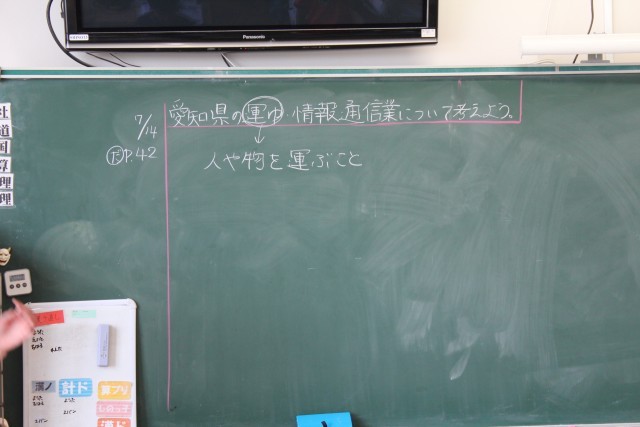 Panasonic
7/14
愛知県の運ゆ・情報通信業について考えよう。
P.42
人や物を運ぶこと
社
道
国
算
理
理
漢ノ
計ド
漢ド